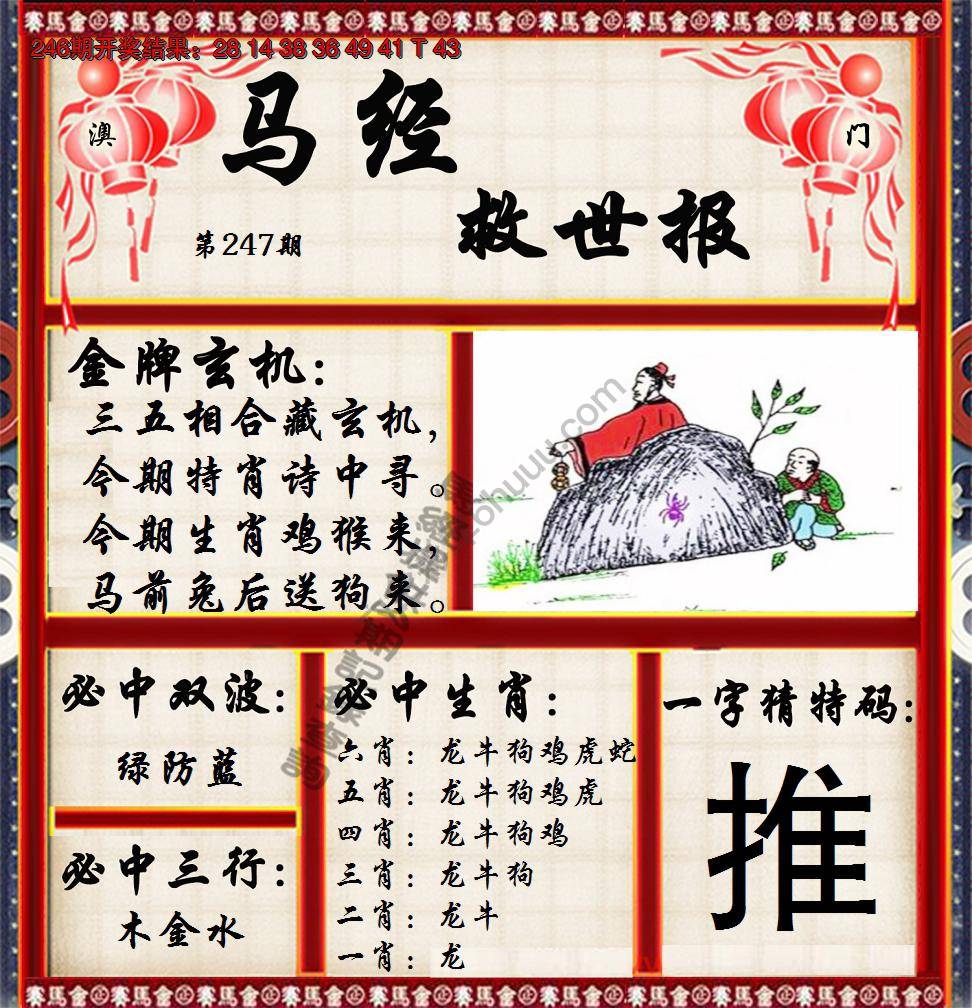 246期开奖结果：28 14 38 36 49 41 T 43
澳
门
马经
救世报
第247期
金牌玄机：
三五相合藏玄机，
今期特肖诗中寻。
今期生肖鸡猴来，
马前兔后送狗来。
必中双波：
绿防蓝
必中三行：
木金水
必中生肖：
六肖：龙牛狗鸡虎蛇
五肖：龙牛狗鸡虎
四肖：龙牛狗鸡
三肖：龙牛狗
二肖：龙牛
一肖：龙
一字猜特码：
推